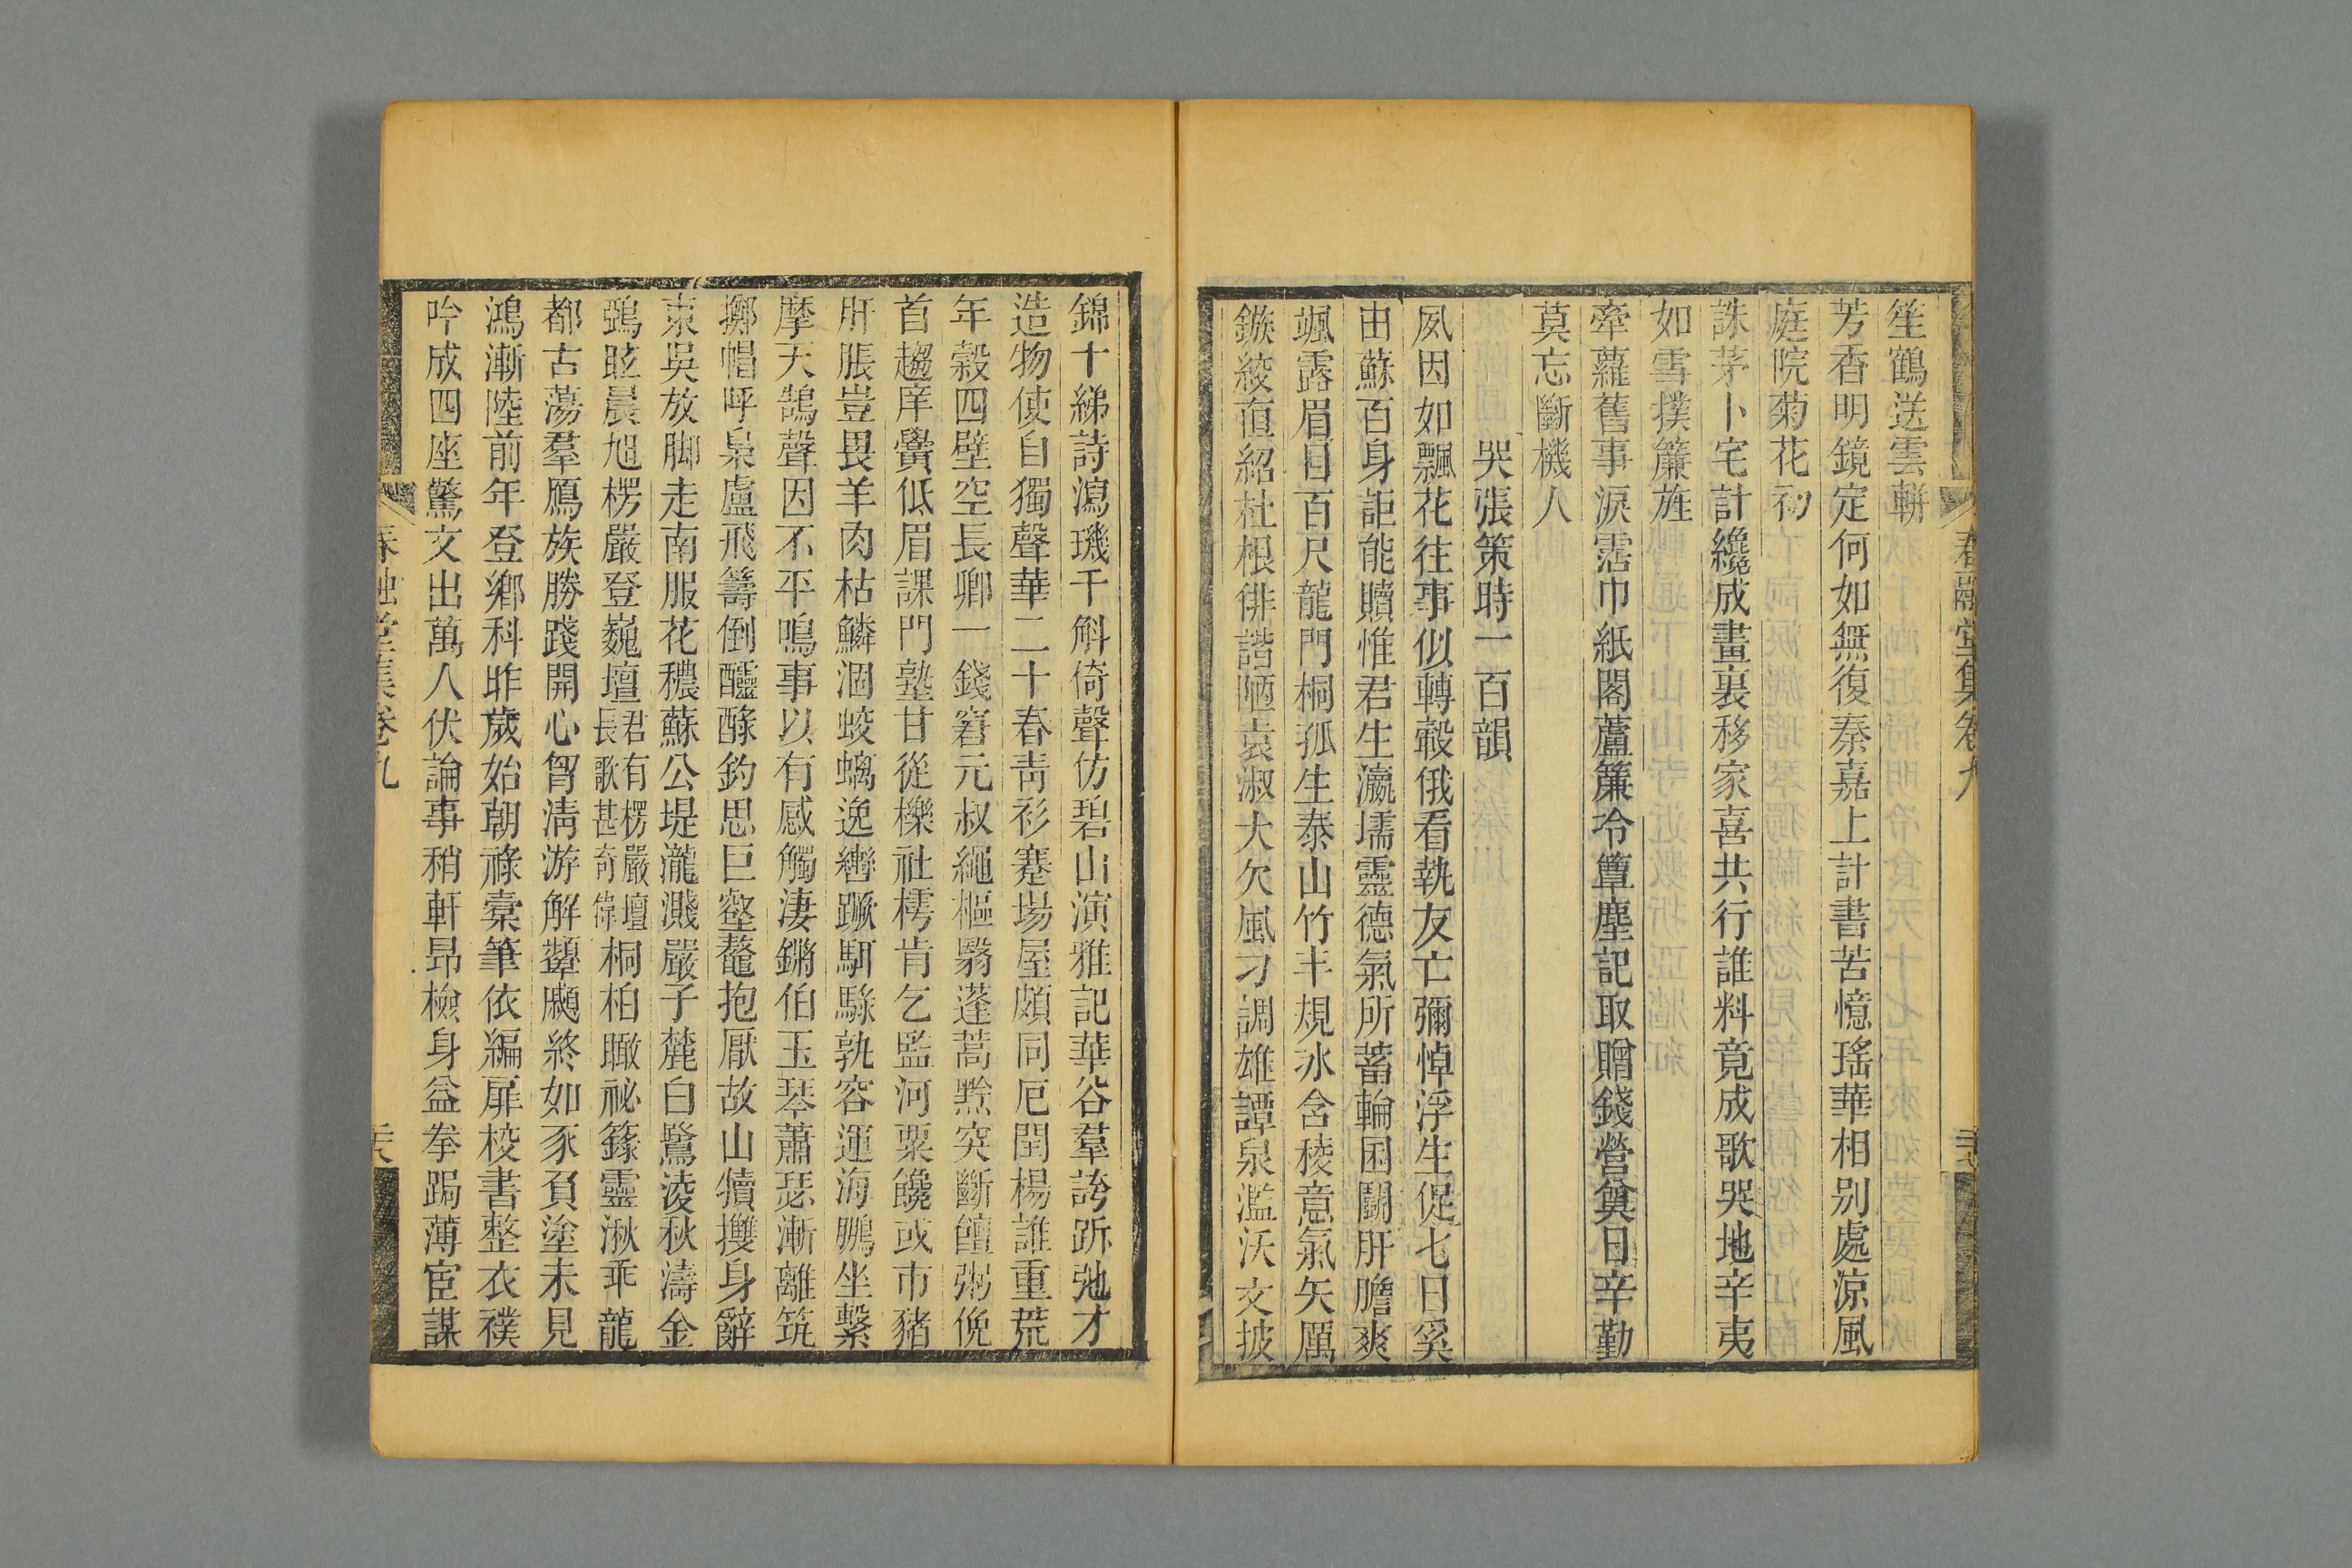 春融堂集卷九
笙鶴送雲輧
芳香明鏡定何如無復秦嘉上計書苦憶瑤華相別處涼風
庭院菊花初
誅茅卜宅計纔成畫裏移家喜共行誰料竟成歌哭地辛夷
如雪撲簾旌
牽蘿舊事淚霑巾紙閣蘆簾冷簟塵記取贈錢營奠日辛勤
莫忘斷機人
哭張策時一百韻
夙因如飄花往事似轉轂俄看執友亡彌悼浮生促七日奚
由蘇百身詎能贖惟君生瀛壖靈德氣所蓄輪囷鬭肝膽爽
颯露眉目百尺龍門桐孤生泰山竹丰規冰含稜意氣矢厲
鏃綾亱紹杜根俳諧陋袁淑大欠風刁調雄譚泉濫沃文披
錦十綈詩瀉璣千斛倚聲仿碧山演雅記華谷羣誇跅弛才
造物使自獨聲華二十春靑衫蹇場屋頗同厄閏楊誰重荒
年穀四壁空長卿一錢窘元叔繩樞翳蓬蒿黔突斷饘粥俛
首趨庠黌低眉課門塾甘從櫟社樗肯乞監河粟饞或市豬
肝脹豈畏羊肉枯鱗涸蛟螭逸轡蹶駬騄孰容運海鵬坐繫
摩天鵠聲因不平鳴事以有感觸淒鏘伯玉琴蕭瑟漸離筑
擲帽呼梟盧飛籌倒醽醁釣思巨壑鼇抱厭故山犢攖身辭
東吳放脚走南服花穠蘇公堤瀧濺嚴子麓白鷺凌秋濤金
鴉眩晨旭楞嚴登巍壇君有楞嚴壇長歌甚奇偉桐柏瞰祕籙靈湫乖龍
都古蕩羣鴈族勝踐開心胷淸游解顰顣終如豕負塗未見
鴻漸陸前年登鄉科昨歲始朝祿橐筆依編扉校書整衣襆
吟成四座驚文出萬人伏論事稍軒昂檢身益拳跼薄宦謀
春融堂集卷九